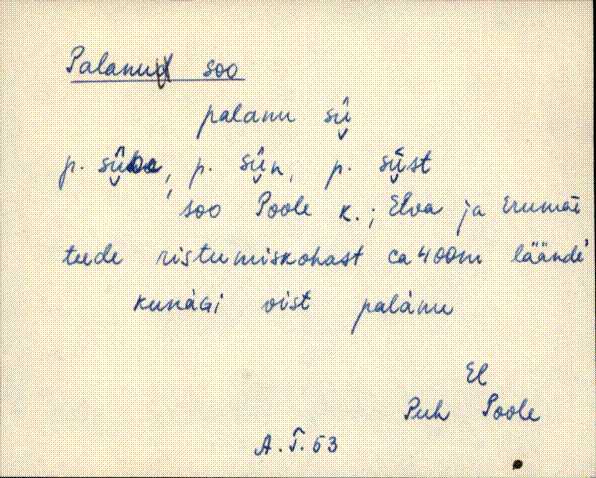 Palanud soo
palanu sů
p. sůna, p. sůn, p. sůst
soo Poole k.; Elva ja Erumäe
teede ristumiskohast ca 400m läände
kunàgi vist palànu
El
Puh Poole
A.T. 53